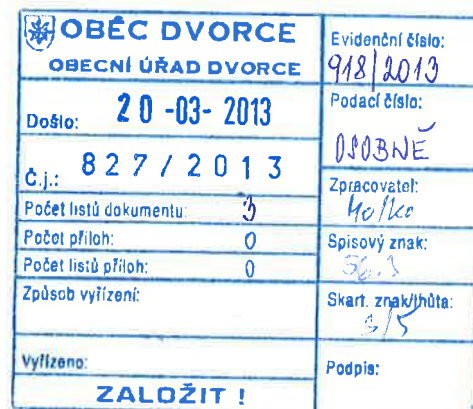 OBEC DVORCE
OBECNÍ ÚŘAD DVORCE
Došlo: 20 -03- 2013
Č.j.: 827/2013
Počet listů dokumentu: 3
Počet příloh: 0
Počet listů příloh: 0
Způsob vyřízení:
Vyřízeno:
ZALOŽIT !
Evidenční číslo:
918/2013
Podací číslo:
OSOBNĚ
Zpracovatel:
Spisový znak:
56.3
Skart. znak/lhůta:
S/5
Podpis: